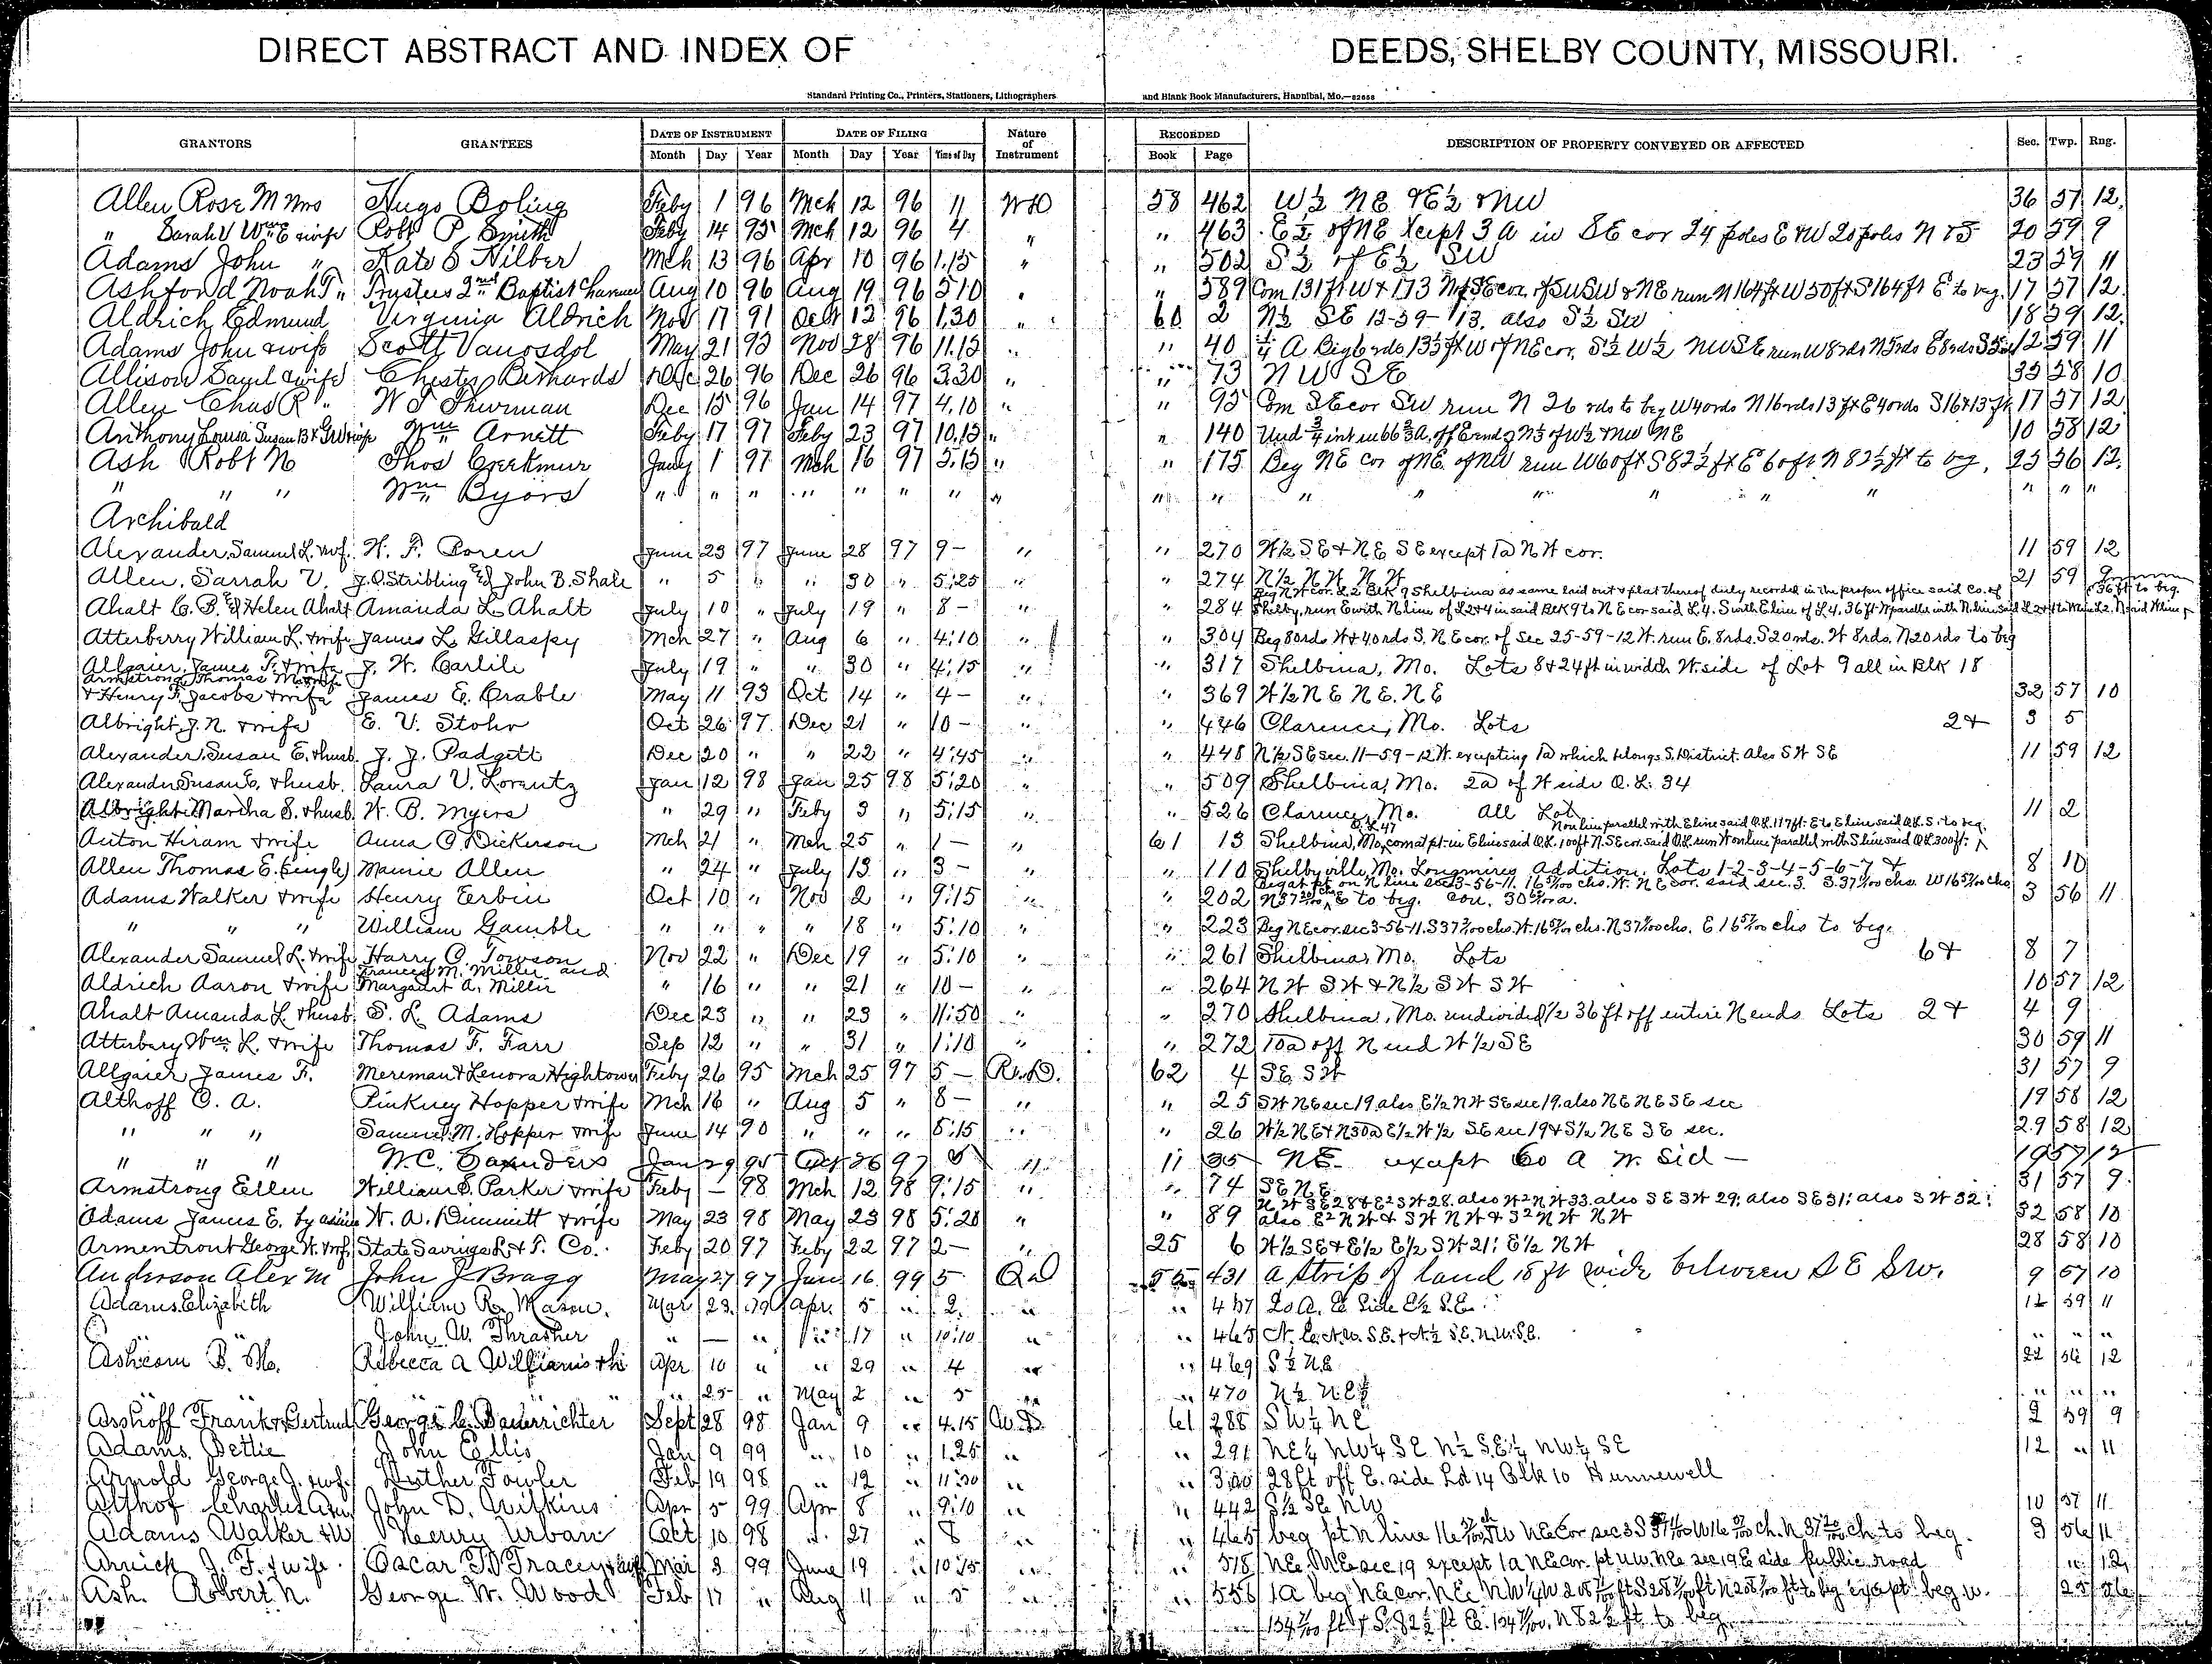 DIRECT ABSTRACT AND INDEX OF DEEDS, SHELBY COUNTY, MISSOURI.
Standard Printing Co., Printers, Stationers, Lithographers and Blank Book Manufacturers, Hannibal, Mo.—22658
GRANTORS GRANTEES DATE OF INSTRUMENT DATE OF FILING Nature of Instrument RECORDED DESCRIPTION OF PROPERTY CONVEYED OR AFFECTED Sec. Twp. Rng.
Month Day Year Month Day Year Time of Day Book Page
Allen Rose M Mrs Hugo Boling Feby 1 96 Mch 12 96 11 WD 58 462 W½ NE & E½ NW 36 57 12
" Sarah V Wm E wife Robt P Smith Feby 14 95 Mch 12 96 4 " " 463 E½ of NE Xcept 3 a in SE cor 24 poles E & W 20 poles N & S 20 59 9
Adams John " Kate S Hilber Mch 13 96 Apr 10 96 1.15 " " 502 S½ of E½ SW 23 59 11
Ashford Noah T " Trustees 2nd Baptist Aug 10 96 Aug 19 96 510 " " 589 Com 131 ft W & 173 N of SE cor of SW SW & NE run N 164 ft W 50 ft S 164 ft E to beg. 17 57 12
Aldrich Edmund Virginia Aldrich Nov 17 91 Oct 12 96 1.30 " 60 2 N½ SE 12-59-13. also S½ SW 18 59 12
Adams John & wife Scott Vanosdol May 21 93 Nov 28 96 11.15 " " 40 ¼ A Beg 6 rds 13½ ft W of NE cor. S½ W½ NW SE run W 8 rds N 5 rds E 8 rds S 5 12 59 11
Allison Saml & wife Chester Bernards Dec 26 96 Dec 26 96 3.30 " " 73 NW SE 35 58 10
Allen Chas R " W S Thurman Dec 15 96 Jan 14 97 4.10 " " 95 Com SE cor SW run N 26 rds to beg W 40 rds N 16 rds 13 ft E 40 rds S 16 & 13 ft 17 57 12
Anthony Louisa Susan B & GW wife Wm Arnett Feby 17 97 Feby 23 97 10.15 " " 140 Und ¾ int in 66⅔ a. off E end of N½ of W½ & NW NE 10 58 12
Ash Robt N Thos Jany 1 97 Mch 16 97 5.15 " " 175 Beg NE cor of NE of NW run W 60 ft S 82½ ft E 60 ft N 82½ ft to beg. 25 56 12
" " " Wm Byors " " " " " " " " " " " " " " " " " " "
Archibald
Alexander, Samuel L. & wf. W. F. Boren June 23 97 June 28 97 9 — " " 270 W½ SE & NE SE except 1a NW cor. 11 59 12
Allen, Sarrah V. J. O. Stribling & John B. Shale " 5 " " 30 " 5:25 " " 274 N½ NW NW 21 59 9
Ahalt C. B. & Helen Ahalt Amanda L. Ahalt July 10 " July 19 " 8 — " " 284 Beg NW cor. L. 2 Blk 9 Shelbina as same laid out & plat thereof duly recorded in the proper office said Co. of
Shelby, run E with N line of L 2 & 4 in said Blk 9 to NE cor said L. 4. S with E line of L 4, 36 ft W parallel with N line said L 2 & 4 to W line L 2, N said W line 36 ft to beg.
Atterberry William L. & wife James L. Gillaspy Mch 27 " Aug 6 " 4:10 " " 304 Beg 80 rds W & 40 rds S. NE cor. of Sec 25-59-12 W. run E. 8 rds. S 20 rds. W 8 rds. N 20 rds to beg
Allgaier, James F. & wife J. W. Carlile July 19 " " 30 " 4:15 " " 317 Shelbina, Mo. Lots 8 & 24 ft in width W. side of Lot 9 all in Blk 18
Armstrong Thomas M. & wife
& Henry F. Jacobs & wife James E. Crable May 11 93 Oct 14 " 4 — " " 369 W½ NE NE. NE 32 57 10
Albright J. N. & wife E. V. Stohr Oct 26 97 Dec 21 " 10 — " " 446 Clarence, Mo. Lots 2 & 3 5
Alexander, Susan E. & husb. J. J. Padgett Dec 20 " " 22 " 4:45 " " 448 N½ SE sec. 11-59-12 W. excepting 1a which belongs S. District. Also SW SE 11 59 12
Alexander Susan E. & husb. Laura V. Lorentz Jan 12 98 Jan 25 98 5:20 " " 509 Shelbina, Mo. 2a of W side O. L. 34
Albright Martha S. & husb. W. B. Myers " 29 " Feby 3 " 5:15 " " 526 Clarence, Mo. all Lot 11 2
Auton Hiram & wife Anna C Dickerson Mch 21 " Mch 25 " 1 — " 61 13 Shelbina, Mo. O.L. 47 com at pt. in E line said O.L. 100 ft N. SE cor. said O.L. run W on line parallel with S line said O.L. 300 ft. N on line parallel with E line said O.L. 117 ft. E to E line said O.L. S. to beg.
Allen Thomas E. (single) Mamie Allen " 24 " July 13 " 3 — " " 110 Shelbyville, Mo. Longmires Addition. Lots 1-2-3-4-5-6-7 & 8 10
Adams Walker & wife Henry Erbin Oct 10 " Nov 2 " 9:15 " " 202 Beg at pt. on N line sec 3-56-11. 16 57/100 chs. W. NE cor. said sec. 3. S. 37 chs. W 16 57/100 chs
N 37 chs E to beg. con. 30 a. 3 56 11
" " " William Gamble " " " " 18 " 5:10 " " 223 Beg NE cor. sec 3-56-11. S 37 chs. W. 16 57/100 chs. N 37 chs. E 16 57/100 chs to beg.
Alexander Samuel L. & wife Harry C. Towson Nov 22 " Dec 19 " 5:10 " " 261 Shelbina, Mo. Lots 6 & 8 7
Aldrich Aaron & wife Frances M. Miller and
Margaret A. Miller " 16 " " 21 " 10 — " " 264 NW SW & N½ SW SW 10 57 12
Ahalt Amanda L & husb. S. L. Adams Dec 23 " " 23 " 11:50 " " 270 Shelbina, Mo. undivided ½ 36 ft off entire N ends Lots 2 & 4 9
Atterbury Wm. L. & wife Thomas F. Farr Sep 12 " " 31 " 1:10 " " 272 10a off N end W½ SE 30 59 11
Allgaier James F. Mereman & Lenora Hightower Feby 26 95 Mch 25 97 5 — R.D. 62 4 SE SW 31 57 9
Althoff C. A. Pinkney Hopper & wife Mch 16 " Aug 5 " 8 — " " 25 SW NE sec 19 also E½ NW SE sec 19. also NE NE SE sec 19 58 12
" " " Samuel M. Hopper & wife June 14 90 " " " 8:15 " " 26 W½ NE & N 50a E½ W½ SE sec 19 & S½ NE SE sec. 29 58 12
" " " W. C. Saunders Jan 29 95 Oct 26 97 " 11 35 NE. except 60 a W. Sid — 19 57 12
Armstrong Ellen William S. Parker & wife Feby — 98 Mch 12 98 9:15 " " 74 SE NE 31 57 9
Adams James E. W. A. Dimmitt & wife May 23 98 May 23 98 5:20 " " 89 NW SE 28 & E2 SW 28. also W2 NW 33. also SE SW 29; also SE 31; also SW 32;
also E2 NW & SW NW & S2 NW NW 32 58 10
Armentrout George W. & wf. State Savings L & T. Co. Feby 20 97 Feby 22 97 2 — " 25 6 W½ SE & E½ E½ SW 21; E½ NW 28 58 10
Anderson Alex M John J Bragg May 27 97 Jan 16 99 5 QD 55 431 a strip of land 15 ft wide between SE SW. 9 57 10
Adams Elizabeth William R. Mason. Mar 23 99 Apr. 5 " 2 " " 457 20 A. E Side E½ S.E. 12 59 11
" " John W. Thrasher " — " " 17 " 10:10 " " 465 N. E. N.W. S.E. & N½ S.E. N.W. S.E. " " "
Ashcom B. M. Rebecca A Williams Apr 10 " " 29 " 4 " " 469 S½ NE 22 56 12
" " " " " 25 " May 2 " 5 " " 470 N½ NE " " "
Asshoff Frank & Gertrud George C. Bauerrichter Sept 28 98 Jan 9 " 4.15 W.D. 61 288 SW¼ NE 2 59 9
Adams Bettie John Ellis Jan 9 99 " 10 " 1.25 " " 291 NE¼ NW¼ SE N½ S.E.¼ NW¼ SE 12 " 11
Arnold George J. & wf. Luther Fowler Feb 19 98 " 12 " 11:30 " " 300 28 ft off E. side Lot 14 Blk 10 Hunnewell
Althof Charles John D. Wilkins Apr 5 99 Apr 8 " 9:10 " " 442 S½ SE NW 10 57 11
Adams Walker & W Henry Urban Oct 10 98 " 27 " 8 " " 465 beg pt N line NE Cor sec 3 to beg. 3 56 11
Amick J. F. & wife Oscar D Tracey Mar 3 99 June 19 " 10:15 " " 518 NE NE sec 19 except 1a NE cor. pt NW NE sec 19 E side public road " 12
Ash. Robert N. George W. Wood Feb 17 " Aug 11 " 5 " " 556 1a beg NE cor. NE NW¼ to beg except beg w. 25 56
ft & S. 82½ ft E. N 82½ ft to beg